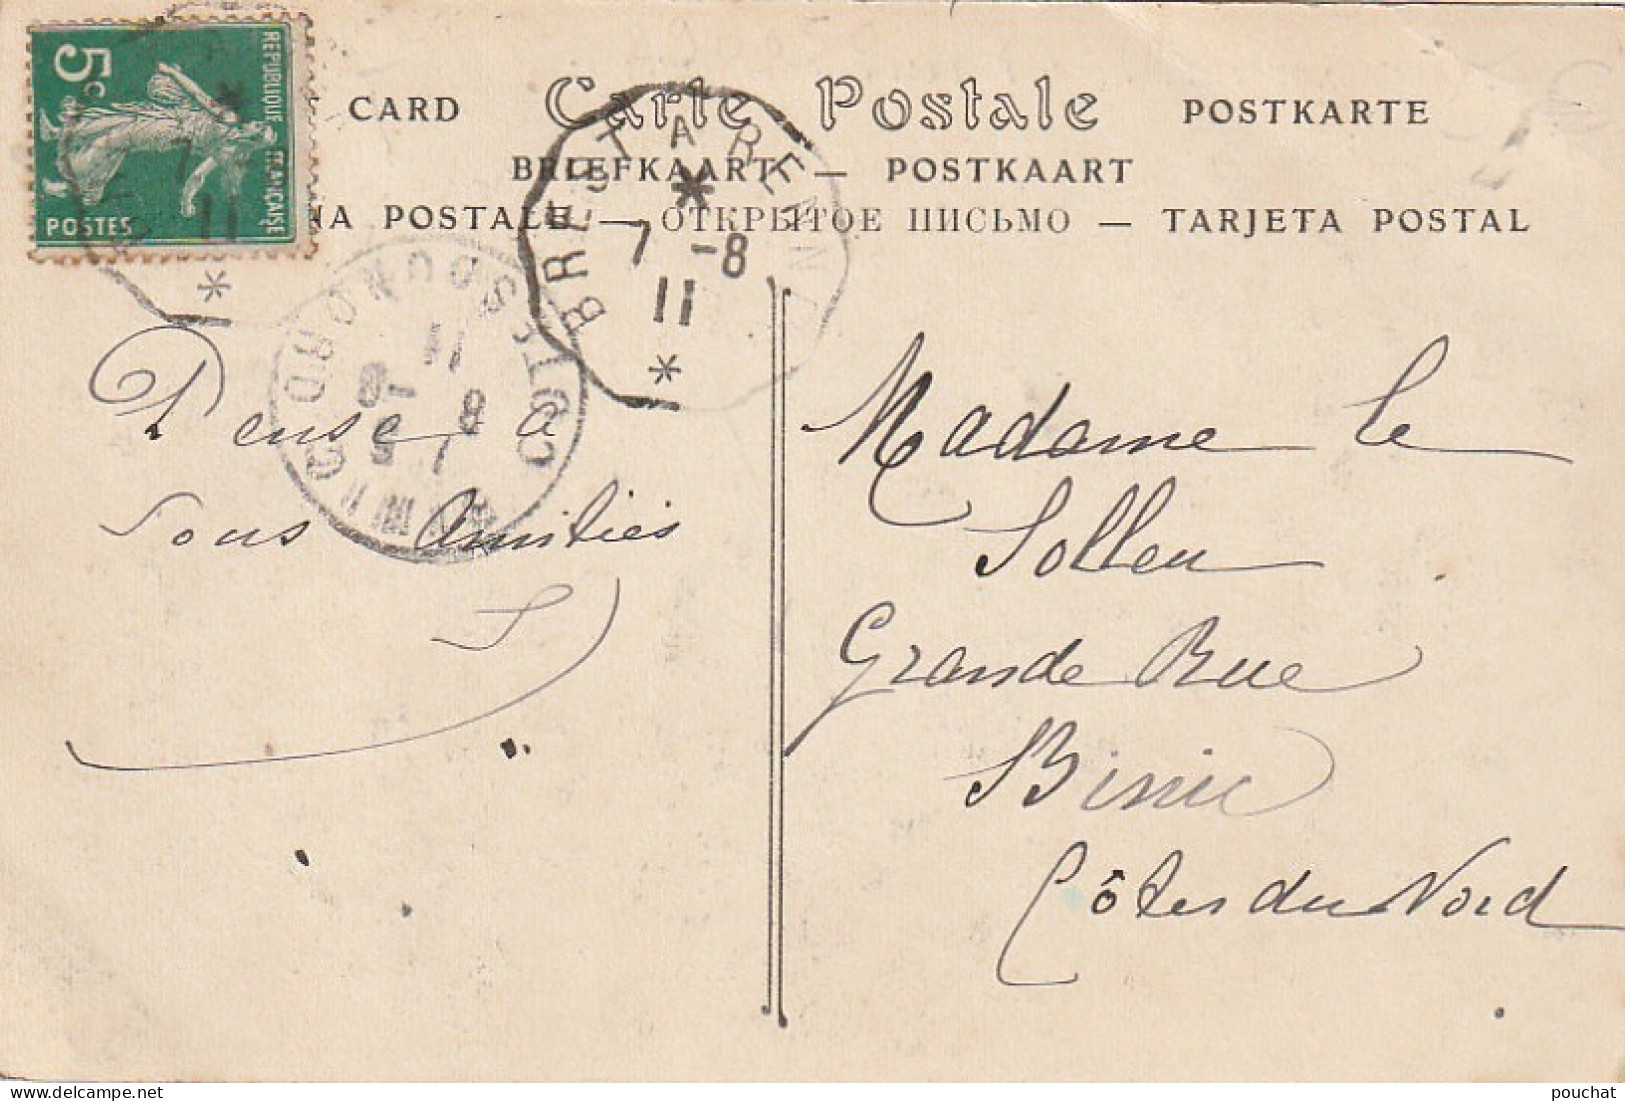 5c
REPUBLIQUE FRANCAISE
POSTES
CARD Carte Postale POSTKARTE
BRIEFKAART — POSTKAART
NA POSTALE — ОТКРЫТОЕ ПИСЬМО — TARJETA POSTAL
BREST A RENN
7 -8
11
*
COTES DU NORD
11
8
Pense, à
vous Amitiés
S
Madame le
Solleu
Grande Rue
Binic
Côtes du Nord
pouchat